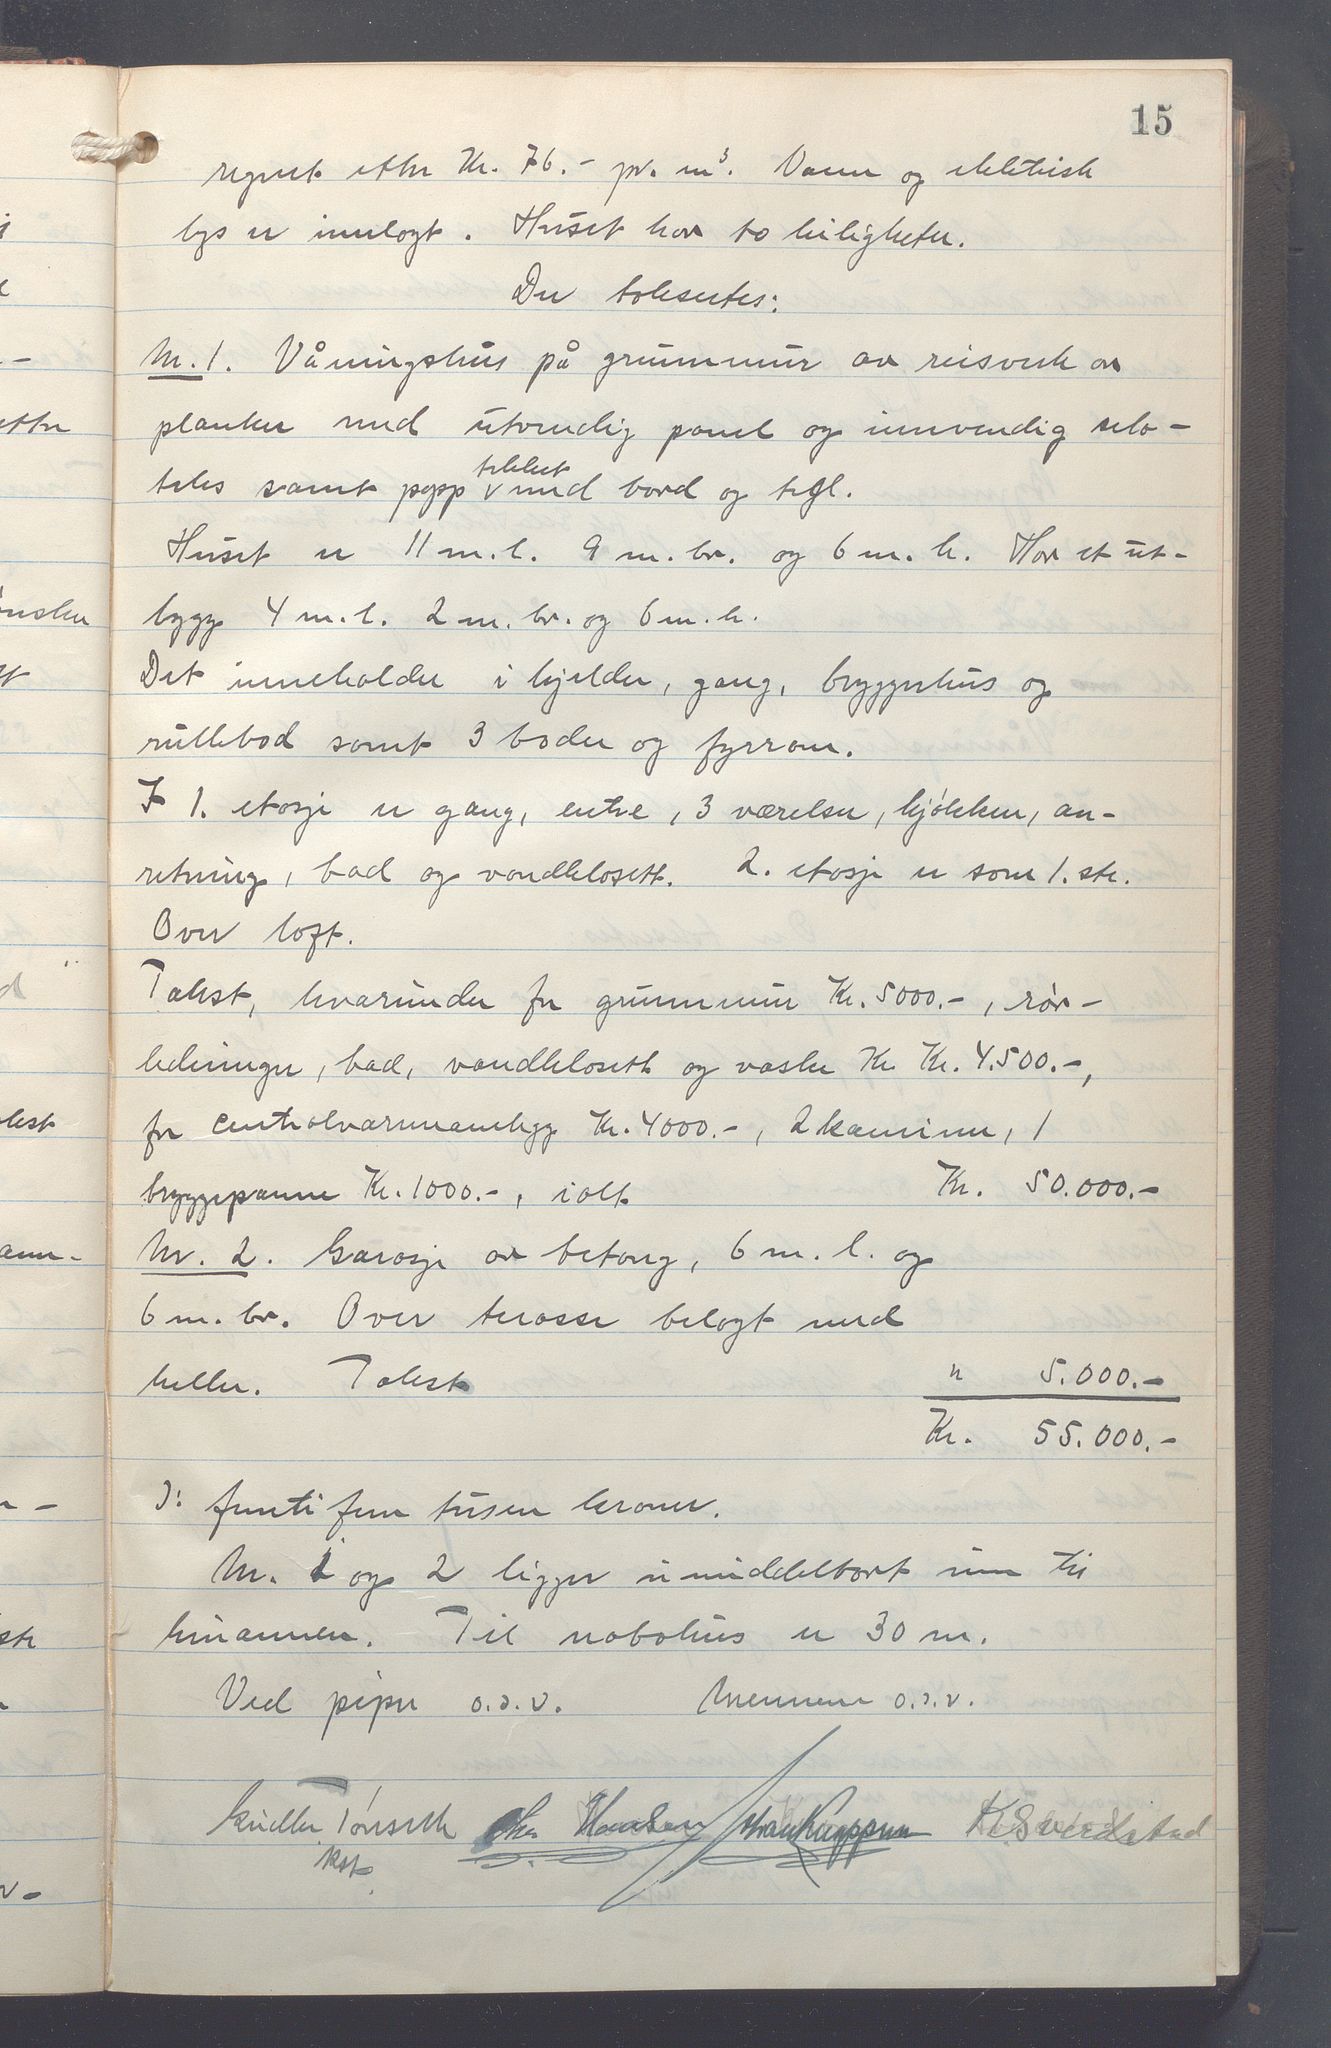 15
regnet etter Kr. 76.- pr. m³. Vann og elektrisk
lys er innlagt. Huset har to leiligheter.
Der takseertes:
Nr. 1. Våningshus på grunnmur av reisverk av
planker med utvendig panel og innvendig selo-
teks samt papp tekket med bord og tegl.
Huset er 11 m. l. 9 m. br. og 6 m. h. Har et ut-
bygg 4 m. l. 2 m. br. og 6 m. h.
Det inneholder i kjelder, gang, bryggerhus og
rullebod samt 3 boder og fyrrom.
I 1. etasje er gang, entre, 3 værelser, kjøkken, an-
retning, bad og vandklosett. 2. etasje er som 1. ste.
Over loft.
Takst, hvorunder for grunnmur Kr. 5000.-, rør-
ledninger, bad, vandklosett og vasker Kr. Kr. 4.500.-,
for centralvarmeanlegg Kr. 4000.-, 2 kaminer, 1
bryggepanne Kr. 1000.-, ialt Kr. 50.000.-
Nr. 2. Garasje av betong, 6 m. l. og
6 m. br. Over terasse belagt med
heller. Takst " 5.000.-
Kr. 55.000.-
ɔ: femti fem tusen kroner.
Nr. 1 og 2 ligger umiddelbart inn til
hinannen. Til nabohus er 30 m.
Ved piper o.s.v. Mennene o.s.v.
Tønseth Hansen K. Sverdstad
kst.
ettr
ønsker